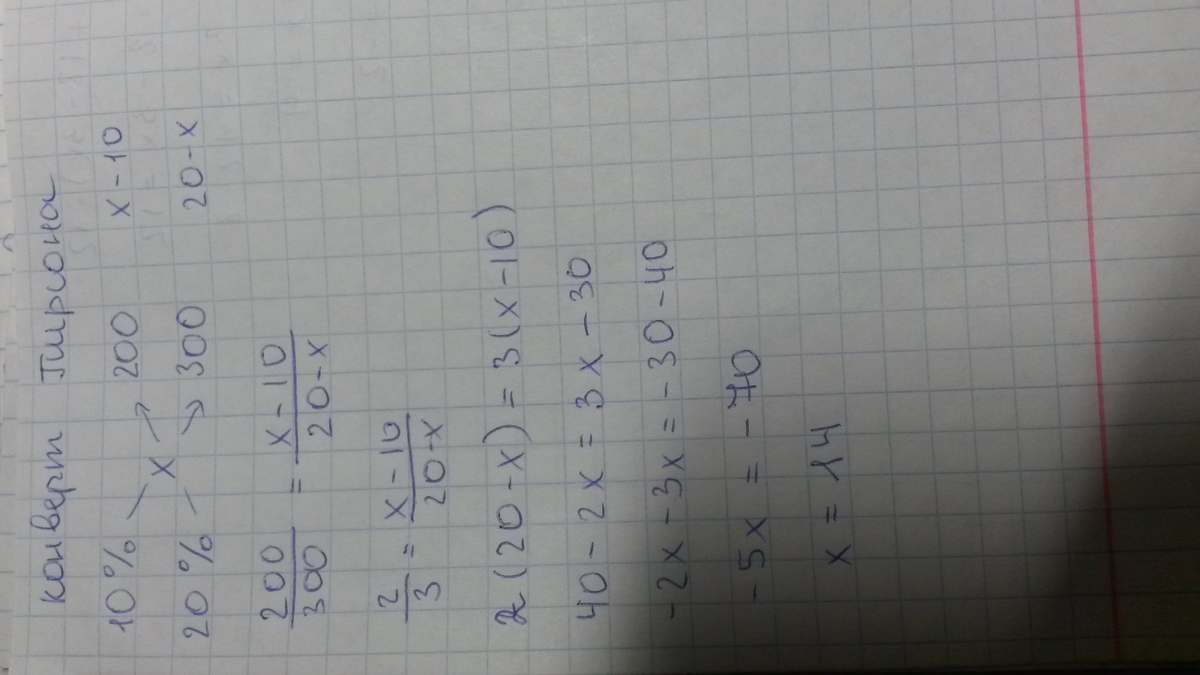 конверт Пирсона
10% x 200 x-10
20% 300 20-x
200/300 = x-10/20-x
2/3 = x-10/20-x
2(20-x)=3(x-10)
40-2x=3x-30
-2x-3x=-30-40
-5x=-70
x=14